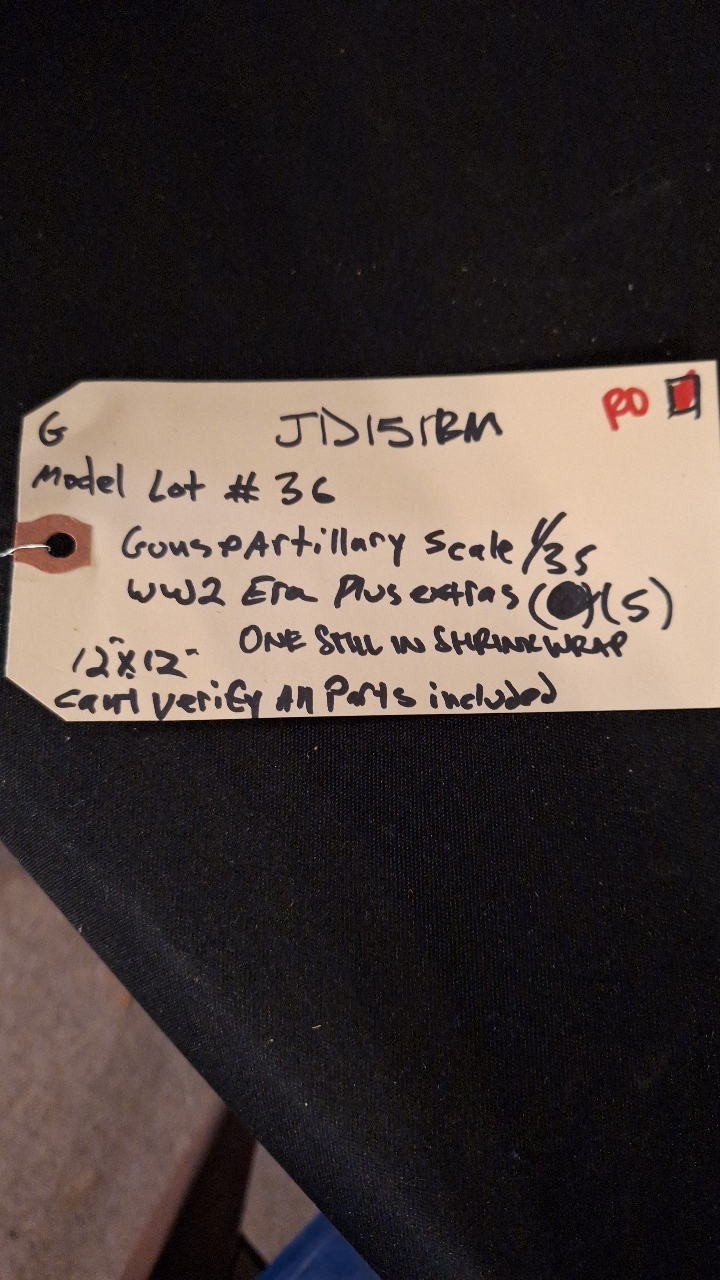 G JD151BM RO
Model Lot # 36
Guns & Artillary Scale 1/35
WW2 Era Plus extras (5)
ONE STILL IN SHRINKWRAP
12"X12"
Can't Verify All Parts included